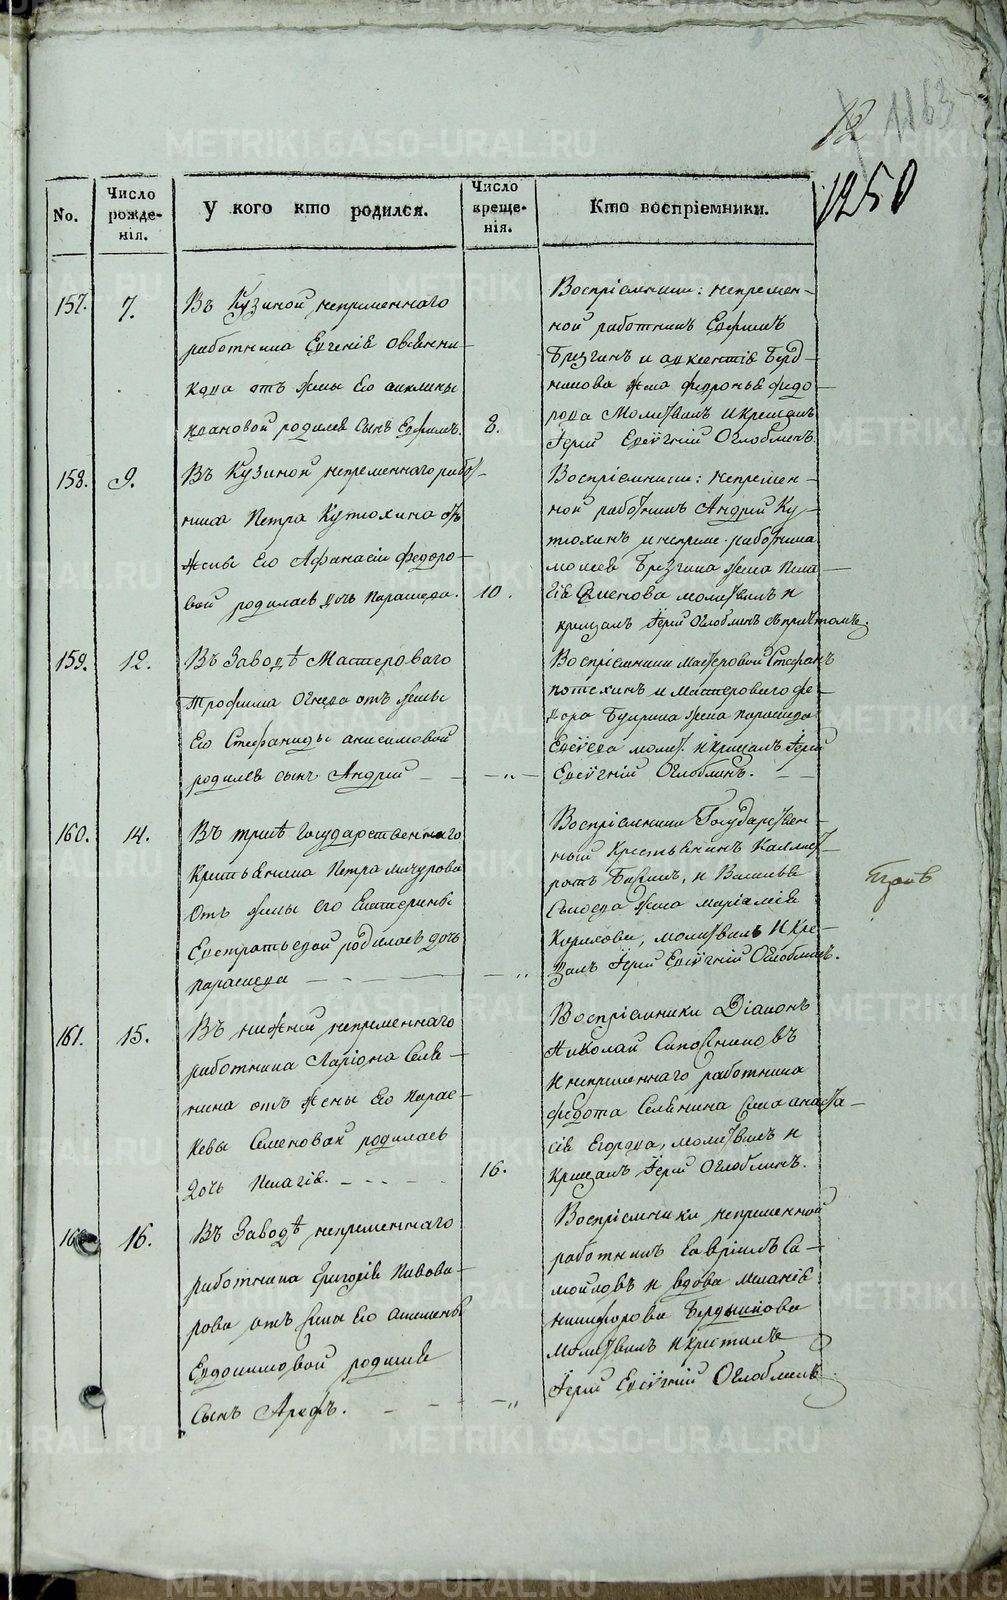 12 1163
1250
No.
Число рожде-
нія.
У кого кто родился.
Число креще-
нія.
Кто воспріемники.
157. 7.
Въ Кузиной непременнаго
работника Евгеніѣ Овчинни-
кова отъ жены Его акилины
Ивановой родился Сынъ Ефимъ. 8.
Воспріемники: непремен-
ной работникъ Ефимъ
Брезгинъ и Берд-
никова жена Федо-
рова Молитвилъ и крещалъ
Іерей Евѳѵгній Оглоблинъ.
158. 9.
Въ Кузиной непременнаго работ-
ника Петра Кутюхина отъ
жены Его Афанасіи Федоро-
вой родилась дочь Парасцева. 10.
Воспріемники: непремен-
ной работникъ Андрей Ку-
тюхинъ и непреме. работника
моисея Брезгина жена Пела-
гія Семенова молитвилъ и
крещалъ Іерей Оглоблинъ съ притомъ.
159. 12.
Въ Заводѣ Мастероваго
Трофима отъ жены
Его Стефаниды анисимовой
родился сынъ Андрей - - „ -
Воспріемники мастеровой Стефанъ
потехинъ и мастероваго фе-
дора жена парасцева
молит. и крещалъ Іерей
Оглоблинъ. - -
160. 14.
Въ Государственнаго
Крестьянина Петра мичурова
Отъ жены его Екатерины
Евстратьевой родилась дочь
парасцева - - - „
Воспріемники Государствен-
ный Крестьянинъ Каллист-
ратъ и Василья
жена маріамія
Кирилова, молитвилъ и Кре-
щалъ Іерей Оглоблинъ.
161. 15.
Въ нижней непременнаго
работника Ларіона Селя-
нина отъ жены Его Парас-
кевы Семеновой родилась
дочь Пелагія. - - - - 16.
Воспріемники Діаконъ
Николай Сапожниковъ
и непременнаго работника
федота Селянина жена анаста-
сія Егорова, молитвилъ и
Крещалъ Іерей Оглоблинъ.
16 16.
Въ Заводѣ непременнаго
работника Григорія Пивова-
рова отъ жены Его
Евдокимовой родился
Сынъ Арефъ. - - - „
Воспріемники непременной
работникъ Гавріилъ Са-
мойловъ и вдова меланія
никифорова Бердникова
молитвилъ и крестилъ
Іерей Оглоблинъ